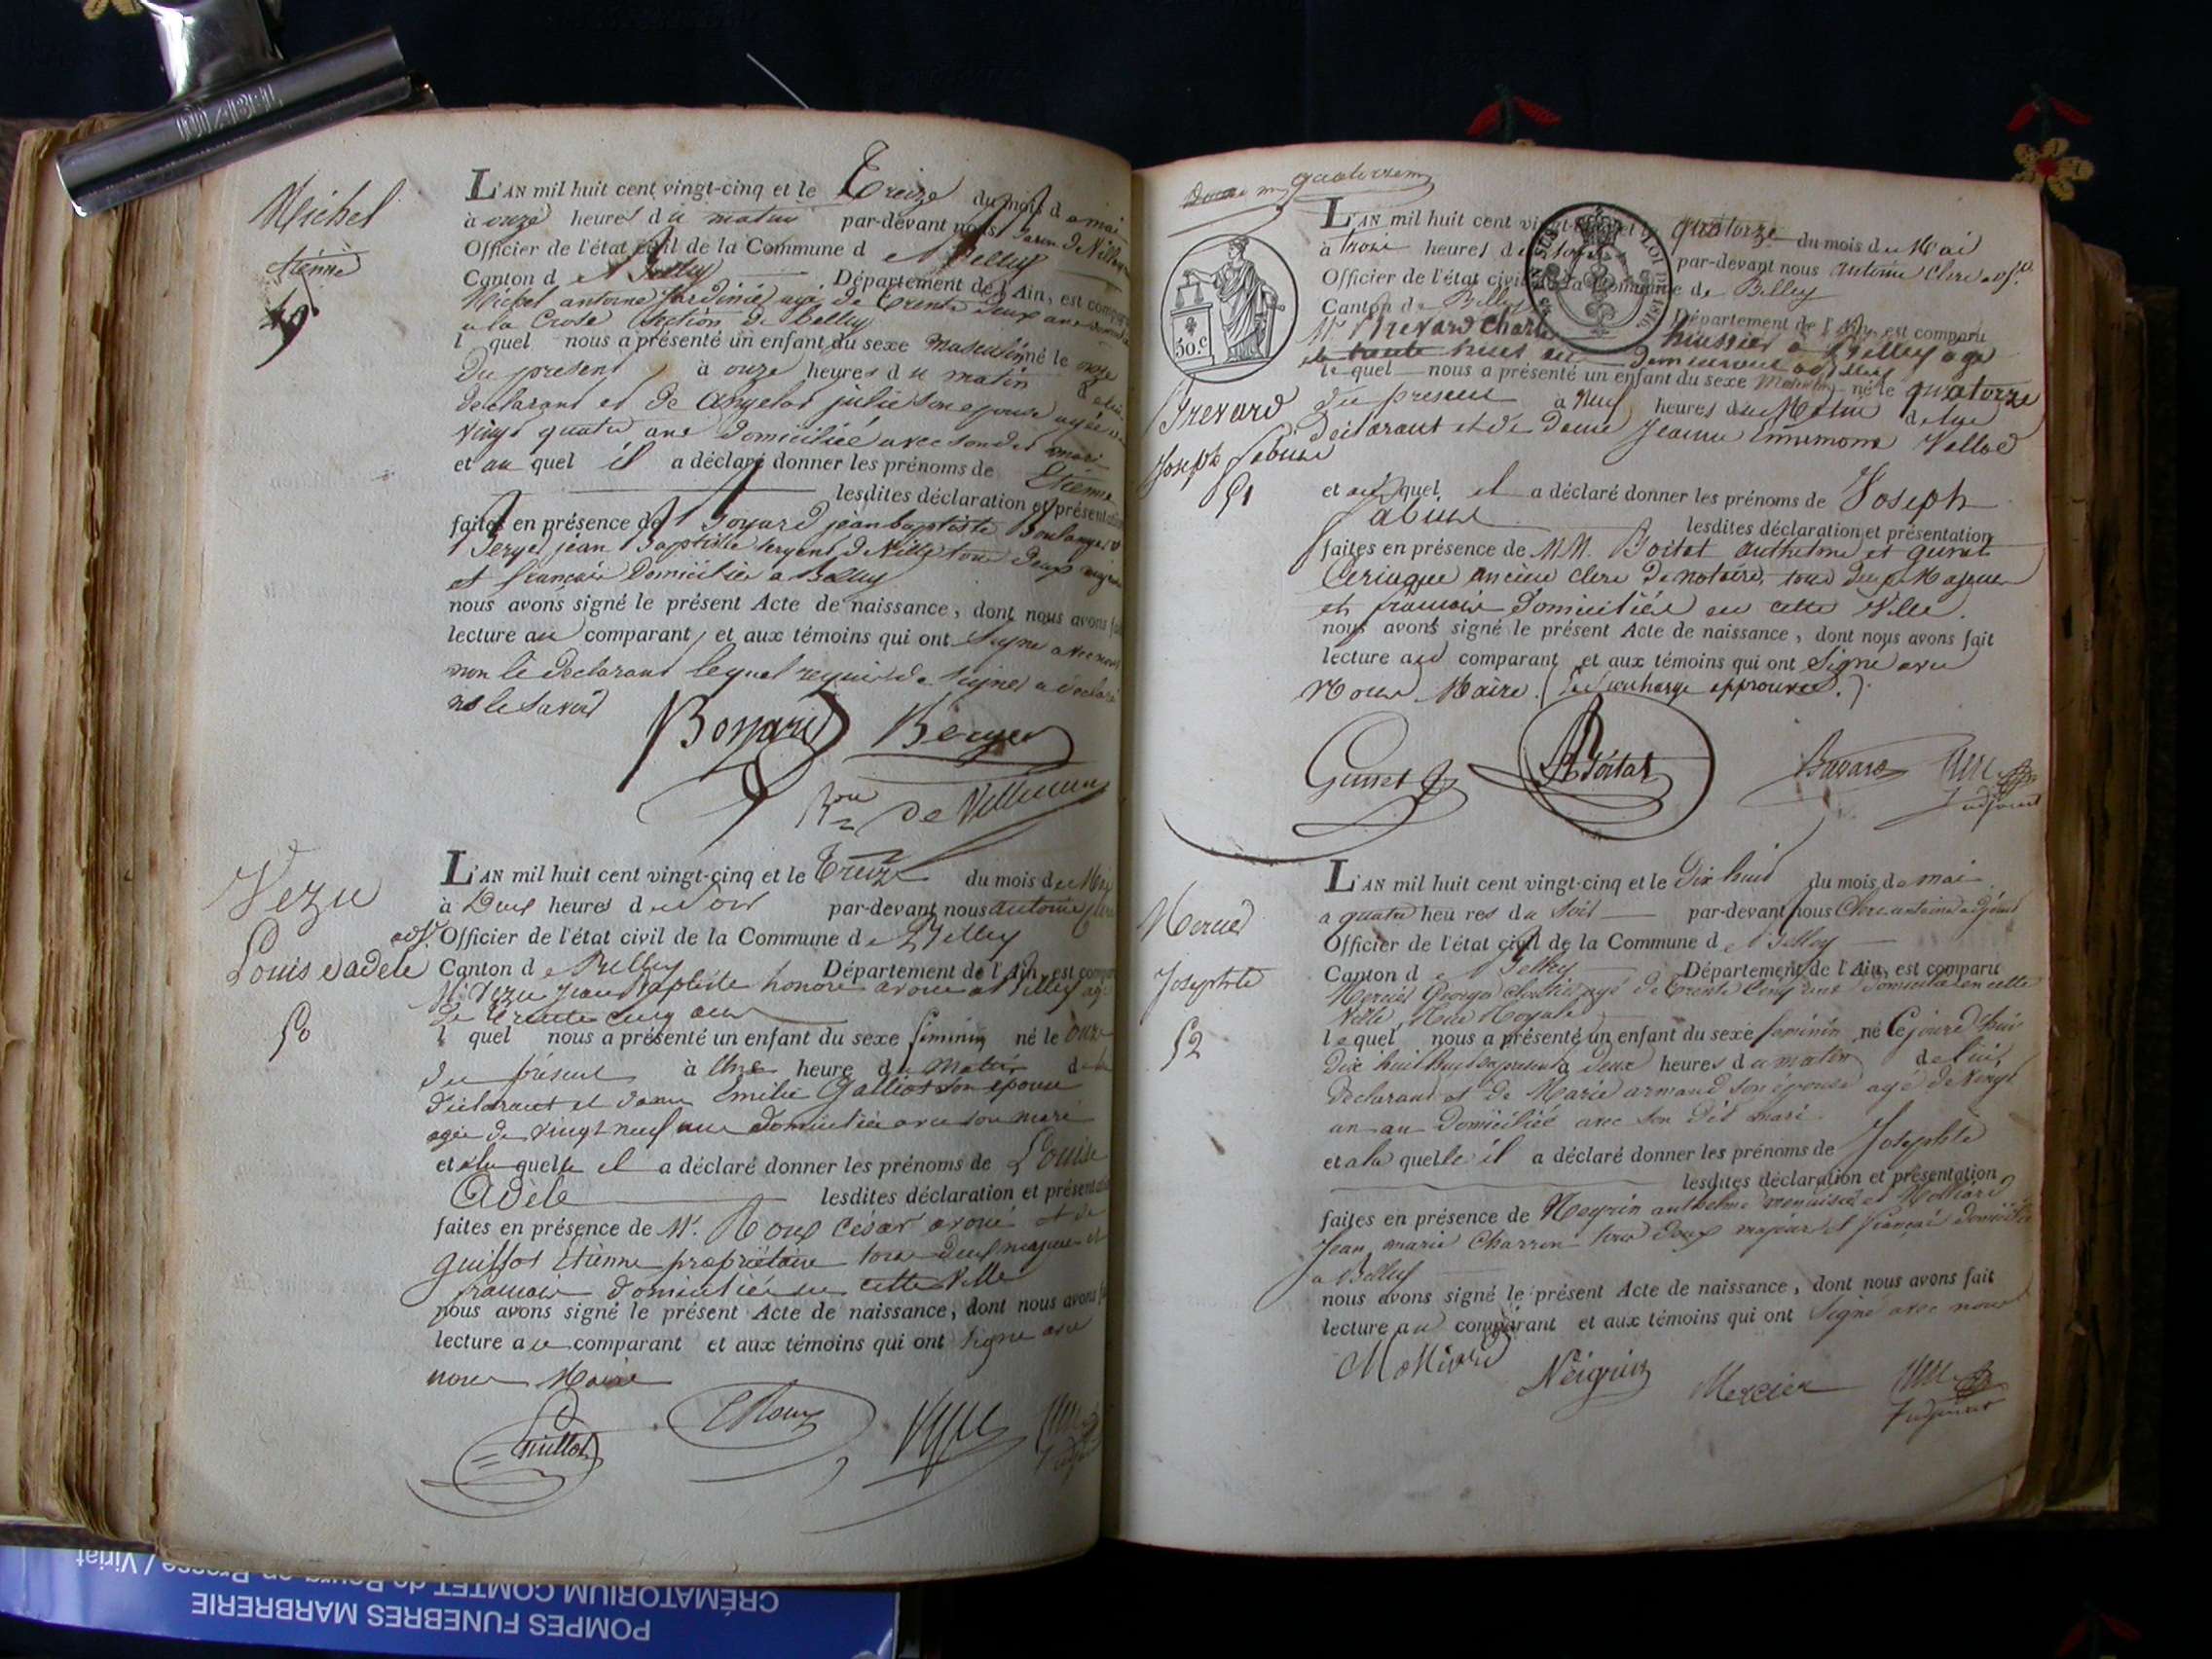 DIABEL
Michel
étienne
49
L'AN mil huit cent vingt-cinq et le Treize du mois de mai
à onze heures du matin par-devant nous Baron de Ville
Officier de l'état civil de la Commune de Belley
Canton de Belley Département de l'Ain, est compar
Michel antoine Jardinié agé de Trente Deux ans
a la Crose Section de Belley
lequel nous a présenté un enfant du sexe masculin né le onze
Du present à onze heures du matin de lui
declarant et de angelot julie son epouse agée de
vingt quatre ans domiciliée avec son dit mari
et au quel il a déclaré donner les prénoms de Etienne
lesdites déclaration et présentation
faites en présence de Boyard jean baptiste Boulanger
Berger jean Baptiste sergent de Ville tous deux majeurs
et français Domiciliés a Belley
nous avons signé le présent Acte de naissance, dont nous avons fait
lecture au comparant et aux témoins qui ont signé avec nous
non le declarant lequel requis de signer a déclaré
ne le savoir
Bossard Berger
Bon de Villeneuve
Vezu
Louise adele
50
L'AN mil huit cent vingt-cinq et le Treize du mois de Mai
à Deux heures du Soir par-devant nous antoine Clerc
adjt. Officier de l'état civil de la Commune de Belley
Canton de Belley Département de l'Ain, est compar
Mr. Vezu Jean Baptiste honoré avoué a Belley agé
de trente cinq ans
lequel nous a présenté un enfant du sexe féminin né le onze
du présent à Une heure du Matin de lui
déclarant et dame Emélie Galliot son épouse
agée de vingt neuf ans domiciliée avec son mari
et a la quelle il a déclaré donner les prénoms de Louise
Adèle lesdites déclaration et présentation
faites en présence de Mr. Roux César avoué et de
guillot Etienne propriétaire tous deux majeurs et
français domiciliés en cette Ville
nous avons signé le présent Acte de naissance, dont nous avons fait
lecture au comparant et aux témoins qui ont signé avec
nous Maire
Guillot CRoux
quatorze
L'AN mil huit cent vingt-cinq et le quatorze du mois de Mai
à heures du par-devant nous antoine Clerc adjt.
Officier de l'état civil de la Commune de Belley
Canton de Belley Département de l'Ain, est comparu
Mr. Trevard Charles huissier a Belley agé
de trente huit ans demeurant a Belley
lequel nous a présenté un enfant du sexe Masculin né le quatorze
du present à Neuf heures du Matin de lui
déclarant et de Dame Jeanne Ennemone Vallod
50.c
LOI DE 1816.
Trevard
Joseph Sabin
51
et au quel il a déclaré donner les prénoms de Joseph
Sabin lesdites déclaration et présentation
faites en présence de MM. Boitat anthelme et guinet
Ceriaque ancien clerc de notaire, tous deux Majeurs
et français domiciliés en cette Ville.
nous avons signé le présent Acte de naissance, dont nous avons fait
lecture au comparant et aux témoins qui ont signé avec
Nous Maire. (la surcharge approuvée.)
Guinet Boitat Clerc
adjoint
Mercier
Josephte
52
L'AN mil huit cent vingt-cinq et le Dix huit du mois de mai
a quatre heures du soir par-devant nous Clerc antoine adjoint
Officier de l'état civil de la Commune de Belley
Canton de Belley Département de l'Ain, est comparu
Mercier Georges agé de Trente Cinq ans domicilié en cette
Ville Rue Royale
lequel nous a présenté un enfant du sexe féminin né Cejourd'hui
Dix huit du présent à deux heures du matin de lui,
Declarant et de Marie armand son épouse agé de Vingt
un an Domiciliée avec son Dit mari
et a la quelle il a déclaré donner les prénoms de Josephte
lesdites déclaration et présentation
faites en présence de Neyrin anthelme menuisié et Molliard
Jean marie Charron tous deux majeurs et français domiciliés
a Belley
nous avons signé le présent Acte de naissance, dont nous avons fait
lecture au comparant et aux témoins qui ont signé avec nous
Molliard Neigrin Mercier Clerc
adjoint
POMPES FUNEBRES MARBRERIE
CRÉMATORIUM COMTET de Bourg-en-Bresse / Viriat